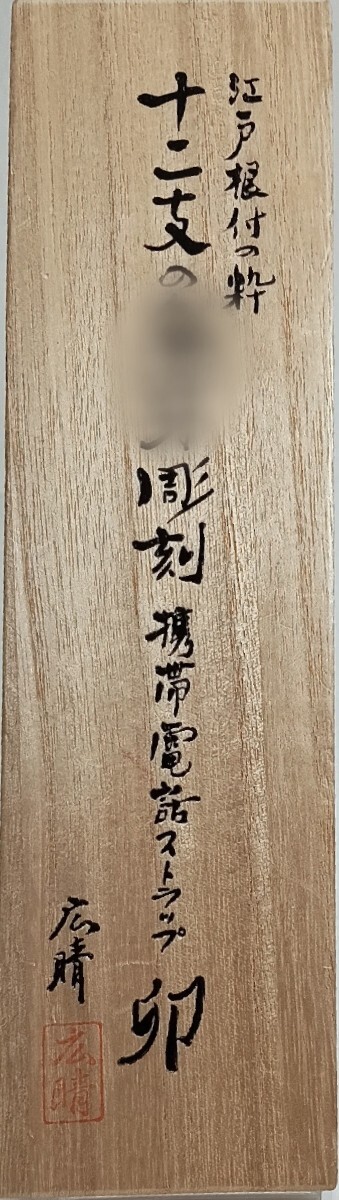 江戸根付の粋
十二支の
彫刻 携帯電話ストラップ 卯
広晴
広晴